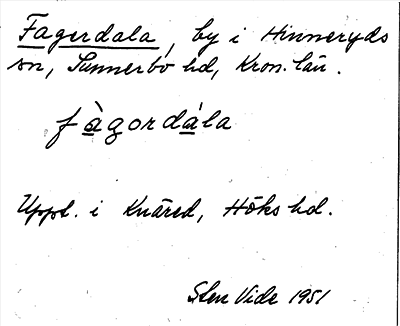 Fagerdala, by i Hinneryds
sn, Sunnerbo hd, Kron. län.
fàgordàla
Uppt. i Knäred, Höks hd.
Sten Vide 1951